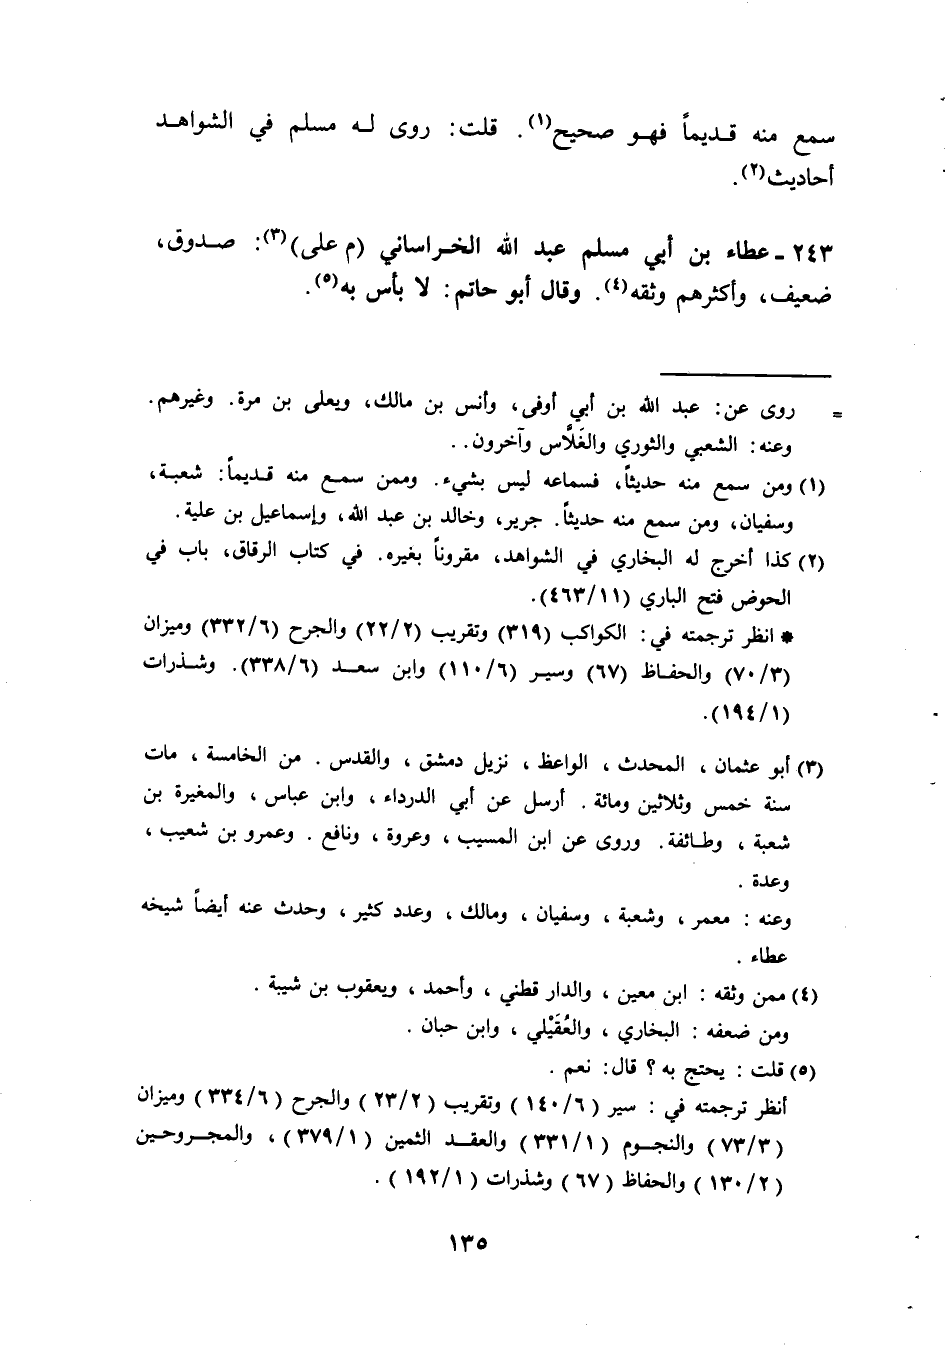 سمع منه قديماً فهو صحيح(١). قلت: روى له مسلم في الشواهد
أحاديث(٢).
٢٤٣ - عطاء بن أبي مسلم عبد الله الخراساني (م على)(٣): صدوق،
ضعيف، وأكثرهم وثقه(٤). وقال أبو حاتم: لا بأس به(٥).
= روى عن: عبد الله بن أبي أوفى، وأنس بن مالك، ويعلى بن مرة. وغيرهم.
وعنه: الشعبي والثوري والغَلَّاس وآخرون..
(١) ومن سمع منه حديثاً، فسماعه ليس بشيء. وممن سمع منه قديماً: شعبة،
وسفيان، ومن سمع منه حديثاً. جرير، وخالد بن عبد الله، وإسماعيل بن علية.
(٢) كذا أخرج له البخاري في الشواهد، مقروناً بغيره. في كتاب الرقاق، باب في
الحوض فتح الباري (٤٦٣/١١).
* انظر ترجمته في: الكواكب (٣١٩) وتقريب (٢٢/٢) والجرح (٣٣٢/٦) وميزان
(٧٠/٣) والحفاظ (٦٧) وسير (١١٠/٦) وابن سعد (٣٣٨/٦). وشذرات
(١٩٤/١).
(٣) أبو عثمان ، المحدث ، الواعظ ، نزيل دمشق ، والقدس . من الخامسة ، مات
سنة خمس وثلاثين ومائة . أرسل عن أبي الدرداء ، وابن عباس ، والمغيرة بن
شعبة ، وطائفة. وروى عن ابن المسيب ، وعروة ، ونافع . وعمرو بن شعيب ،
وعدة .
وعنه : معمر ، وشعبة ، وسفيان ، ومالك ، وعدد كثير ، وحدث عنه أيضاً شيخه
عطاء .
(٤) ممن وثقه : ابن معين ، والدار قطني ، وأحمد ، ويعقوب بن شيبة .
ومن ضعفه : البخاري ، والعُقَيْلي ، وابن حبان .
(٥) قلت : يحتج به ؟ قال: نعم .
أنظر ترجمته في : سير ( ١٤٠/٦ ) وتقريب ( ٢٣/٢ ) والجرح ( ٣٣٤/٦ ) وميزان
( ٧٣/٣ ) والنجوم ( ٣٣١/١ ) والعقد الثمين ( ٣٧٩/١ ) ، والمجروحين
( ١٣٠/٢ ) والحفاظ ( ٦٧ ) وشذرات ( ١٩٢/١ ) .
١٣٥